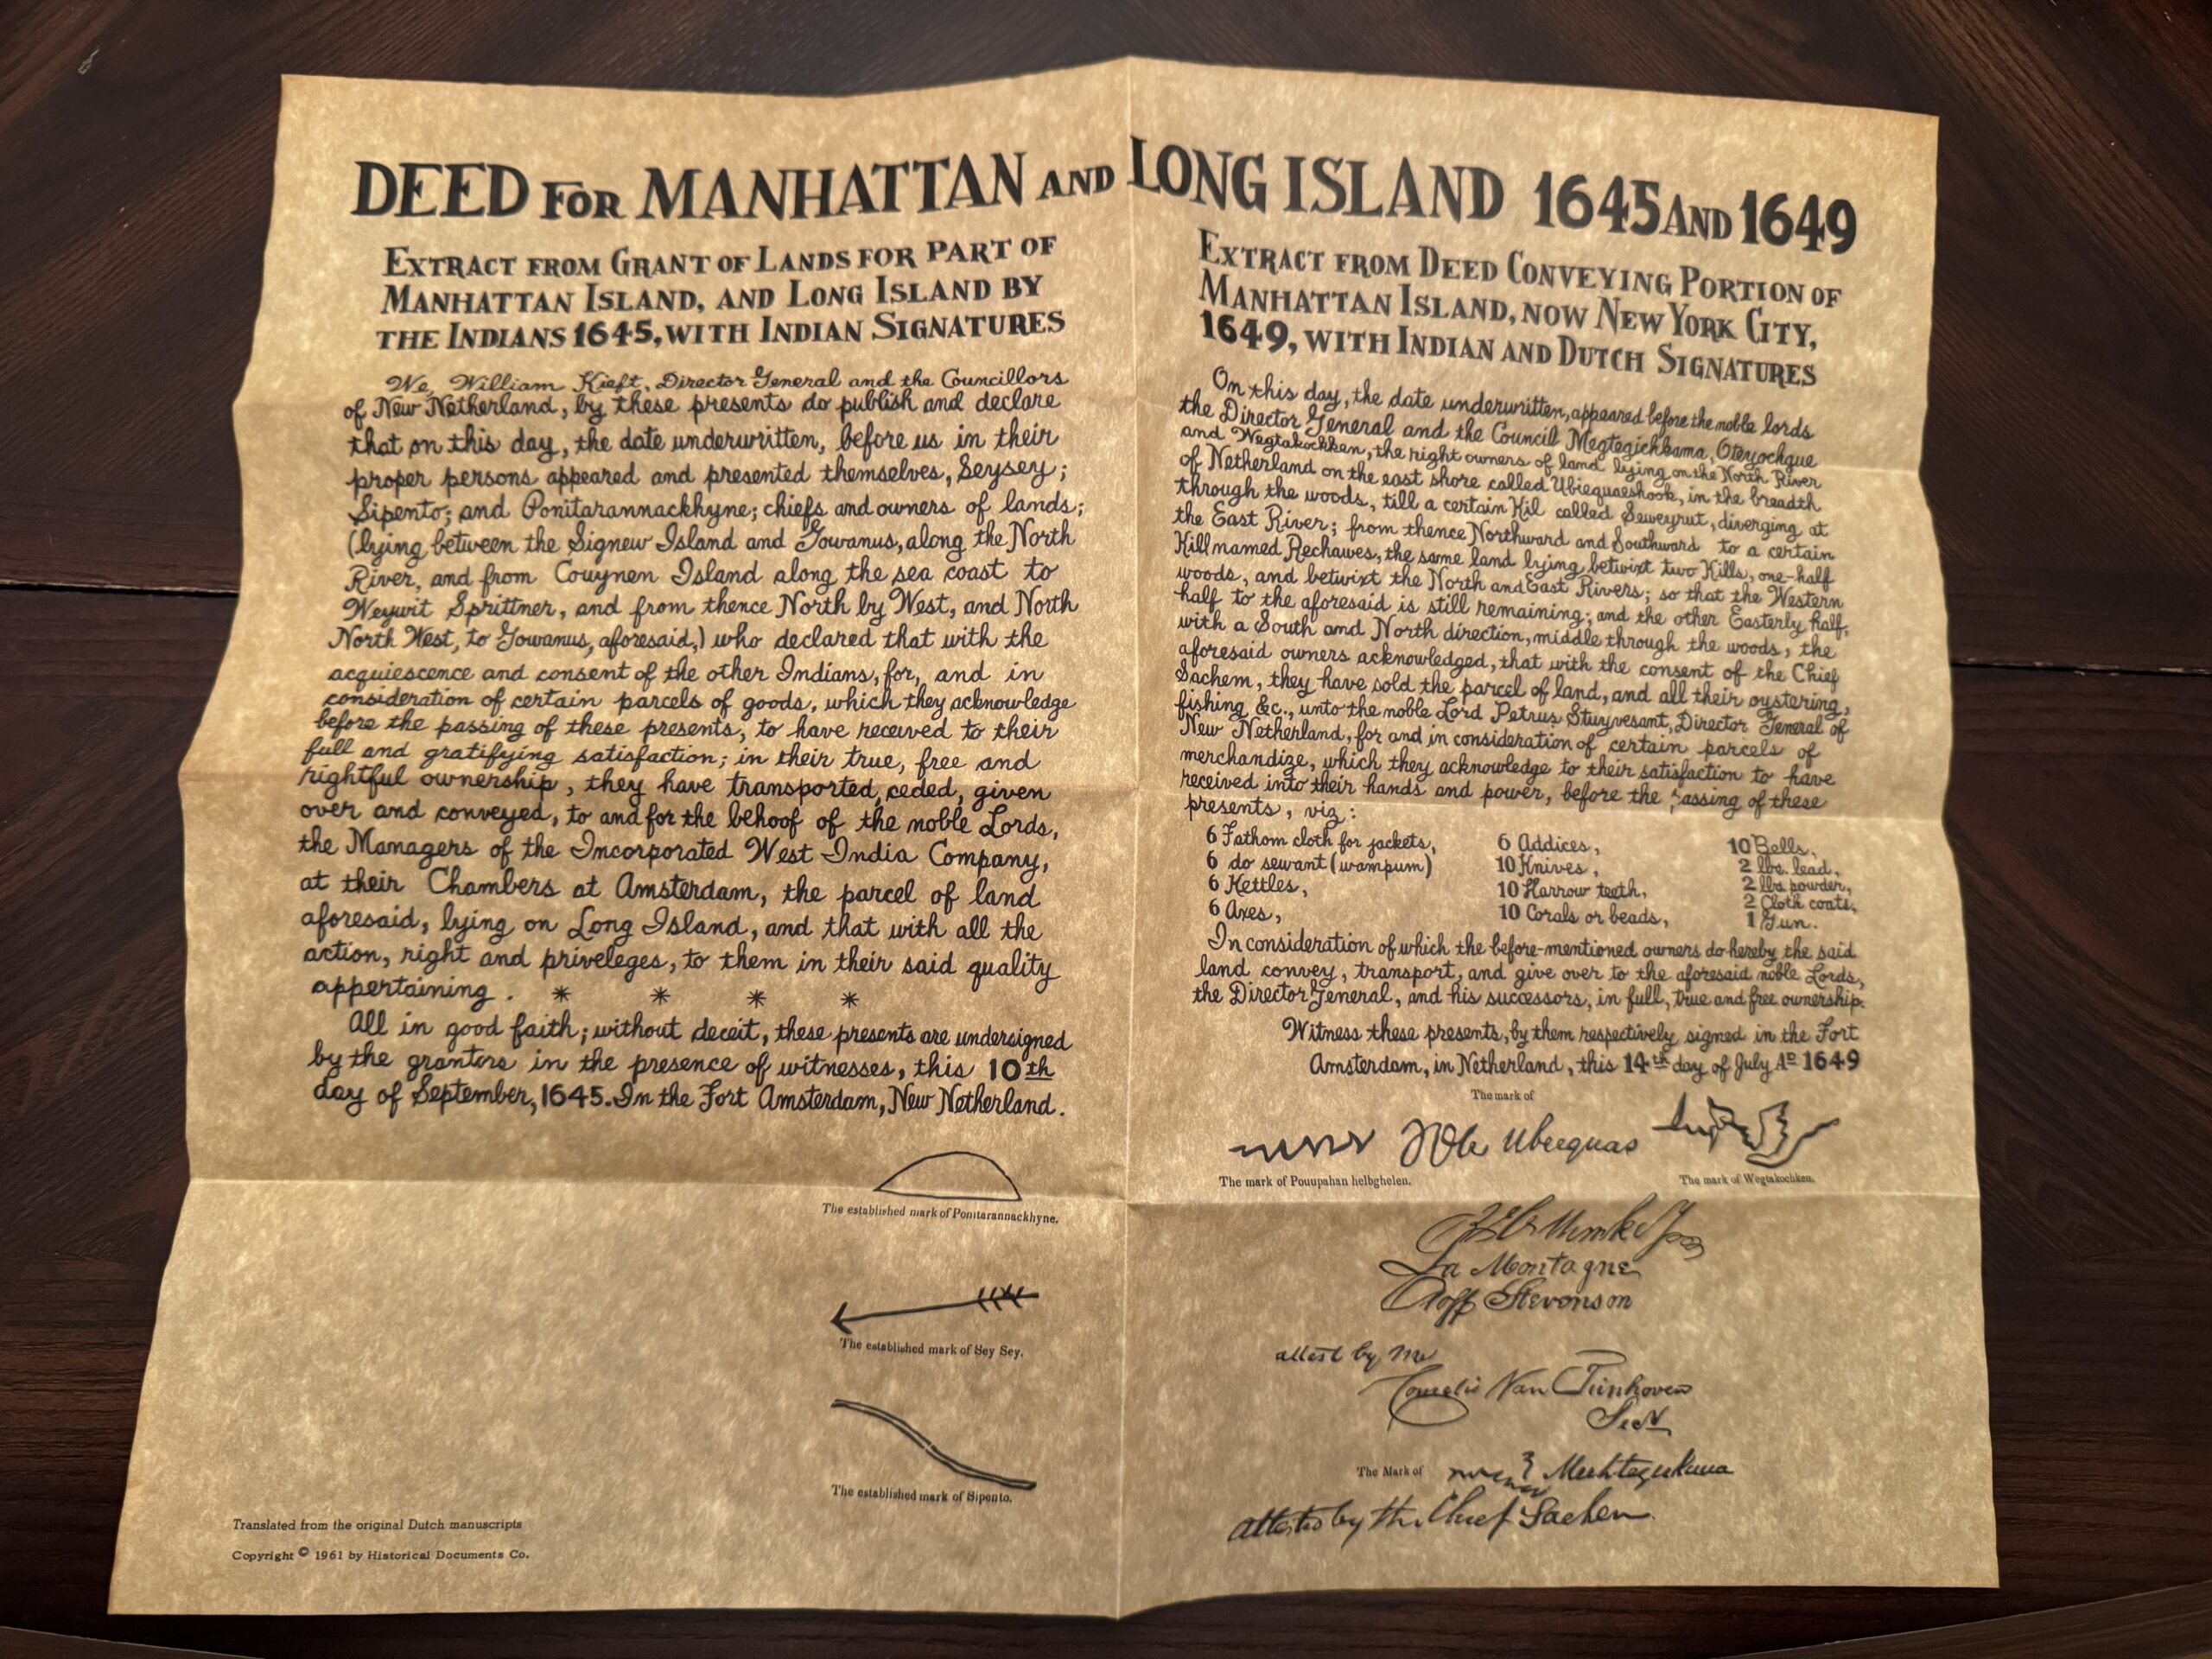 DEED FOR MANHATTAN AND LONG ISLAND 1645 AND 1649
EXTRACT FROM GRANT OF LANDS FOR PART OF
MANHATTAN ISLAND, AND LONG ISLAND BY
THE INDIANS 1645, WITH INDIAN SIGNATURES
We, William Kieft, Director General and the Councillors
of New Netherland, by these presents do publish and declare
that on this day, the date underwritten, before us in their
proper persons appeared and presented themselves, Seysey;
Sipento; and Ponitarannackhyne; chiefs and owners of lands;
(lying between the Signew Island and Gowanus, along the North
River, and from Couynen Island along the sea coast to
Weywit Sprittner, and from thence North by West, and North
North West, to Gowanus, aforesaid,) who declared that with the
acquiescence and consent of the other Indians, for, and in
consideration of certain parcels of goods, which they acknowledge
before the passing of these presents, to have received to their
full and gratifying satisfaction; in their true, free and
rightful ownership, they have transported, ceded, given
over and conveyed, to and for the behoof of the noble Lords,
the Managers of the Incorporated West India Company,
at their Chambers at Amsterdam, the parcel of land
aforesaid, lying on Long Island, and that with all the
action, right and priveleges, to them in their said quality
appertaining. * * * *
All in good faith; without deceit, these presents are undersigned
by the grantors in the presence of witnesses, this 10th
day of September, 1645. In the Fort Amsterdam, New Netherland.
The established mark of Ponitarannackhyne.
The established mark of Sey Sey.
The established mark of Sipento.
Translated from the original Dutch manuscripts
Copyright © 1961 by Historical Documents Co.
EXTRACT FROM DEED CONVEYING PORTION OF
MANHATTAN ISLAND, NOW NEW YORK CITY,
1649, WITH INDIAN AND DUTCH SIGNATURES
On this day, the date underwritten, appeared before the noble lords
the Director General and the Council Megtegichkama, Oteyochgue
and Wegtakochken, the right owners of land lying on the North River
of Netherland on the east shore called Ubiequaeshook, in the breadth
through the woods, till a certain Kil called Seweyrut, diverging at
the East River; from thence Northward and Southward to a certain
Kill named Rechawes, the same land lying betwixt two Kills, one-half
woods, and betwixt the North and East Rivers; so that the Western
half to the aforesaid is still remaining; and the other Easterly half,
with a South and North direction, middle through the woods, the
aforesaid owners acknowledged, that with the consent of the Chief
Sachem, they have sold the parcel of land, and all their oystering,
fishing, &c., unto the noble Lord Petrus Stuyvesant, Director General of
New Netherland, for and in consideration of certain parcels of
merchandize, which they acknowledge to their satisfaction to have
received into their hands and power, before the passing of these
presents, viz:
6 Fathom cloth for jackets, 6 Addices, 10 Bells,
6 do sewant (wampum) 10 Knives, 2 lbs. lead,
6 Kettles, 10 Harrow teeth, 2 lbs powder,
6 Axes, 10 Corals or beads, 2 Cloth coats,
1 Gun.
In consideration of which the before-mentioned owners do hereby the said
land convey, transport, and give over to the aforesaid noble Lords,
the Director General, and his successors, in full, true and free ownership.
Witness these presents, by them respectively signed in the Fort
Amsterdam, in Netherland, this 14th day of July Ao 1649
The mark of
Ubeequas
The mark of Pouupahan helbghelen. The mark of Wegtakochken.
La Montagne
Stevonson
attest by me
Van Tienhoven
The Mark of
attested by the Chief Sachem